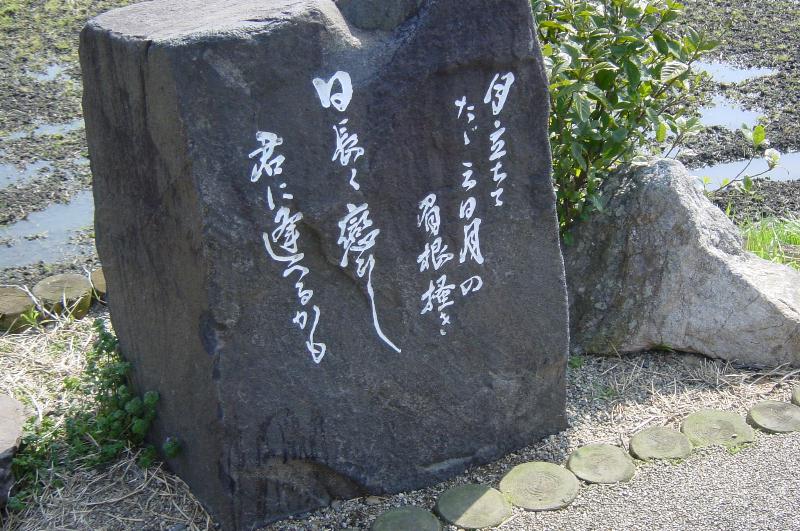 月立ちて
たゞ三日月の
眉根掻き
日長く戀ひし
君に逢へるかも